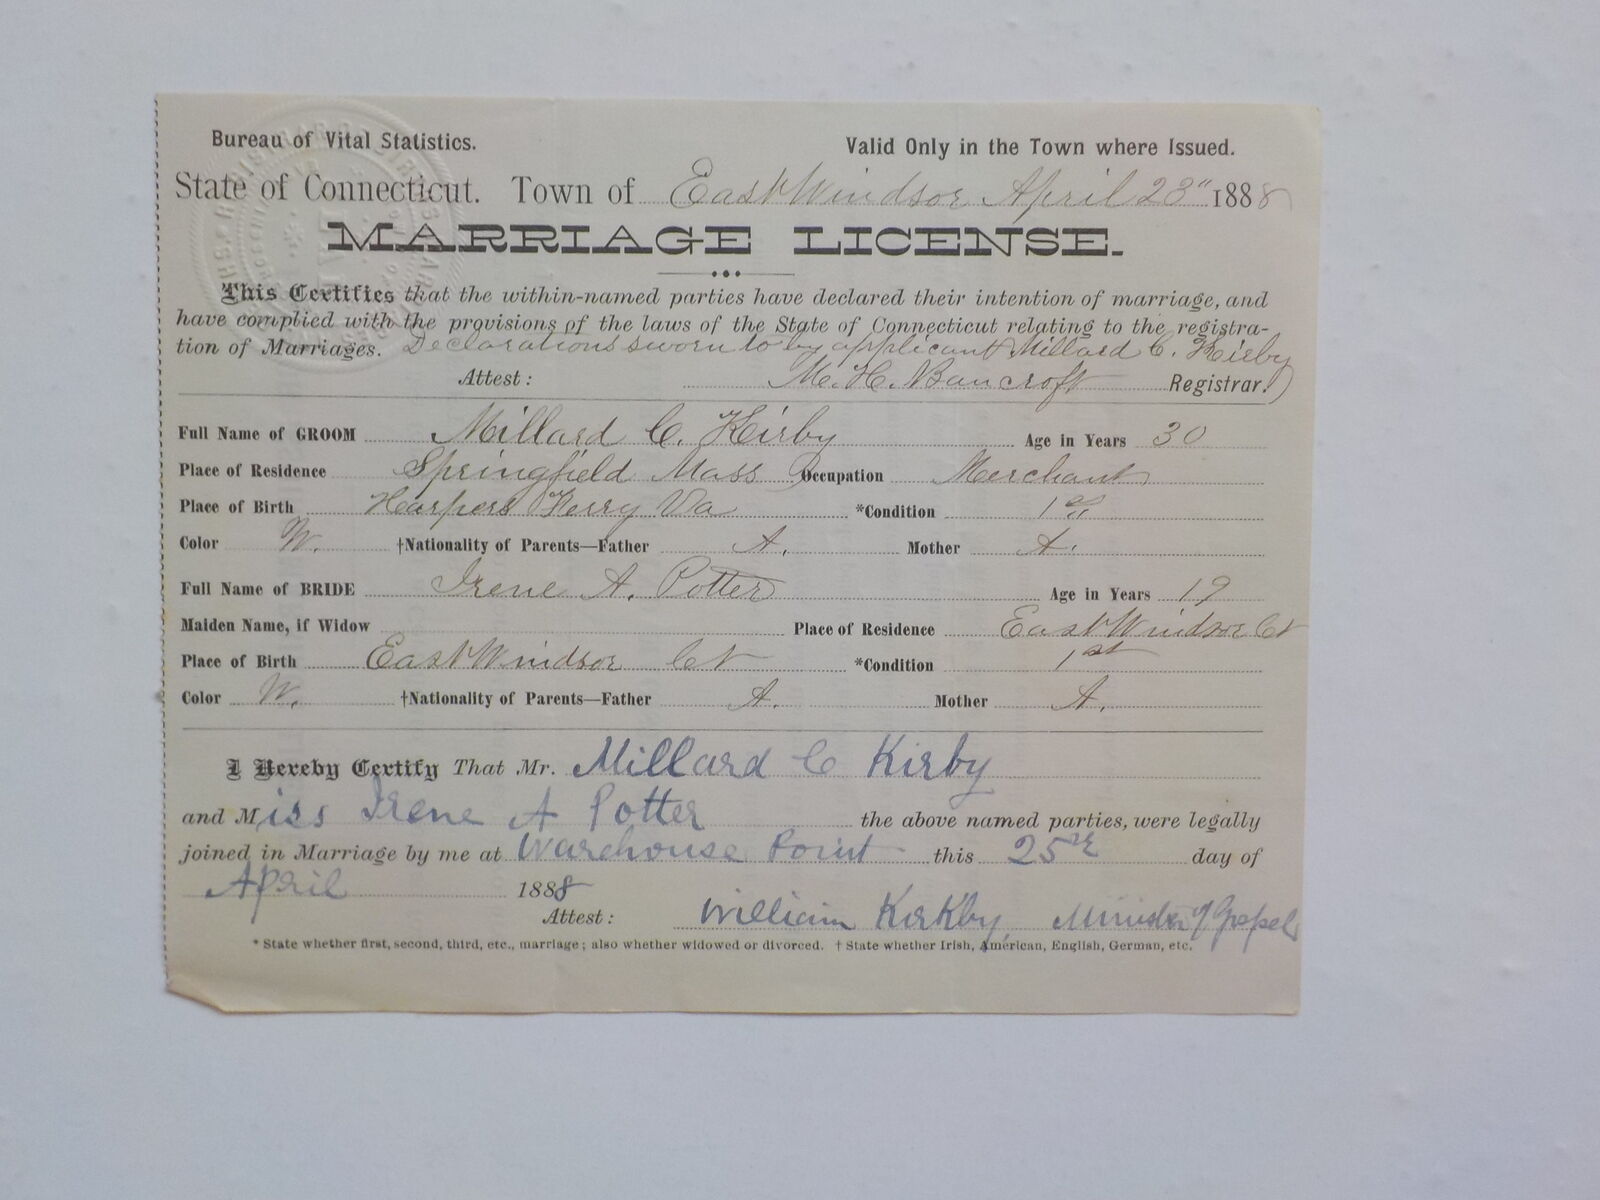 Bureau of Vital Statistics. Valid Only in the Town where Issued.
State of Connecticut. Town of East Windsor April 23" 1888
MARRIAGE LICENSE.
This Certifies that the within-named parties have declared their intention of marriage, and
have complied with the provisions of the laws of the State of Connecticut relating to the registra-
tion of Marriages. Declarations sworn to by applicant Millard C. Kirby
Attest: M. H. Bancroft Registrar.
Full Name of GROOM Millard C. Kirby Age in Years 30
Place of Residence Springfield Mass Occupation Merchant
Place of Birth Harpers Ferry Va *Condition 1st
Color W. †Nationality of Parents—Father A. Mother A.
Full Name of BRIDE Irene A. Potter Age in Years 19
Maiden Name, if Widow Place of Residence East Windsor Ct
Place of Birth East Windsor Ct *Condition 1st
Color W. †Nationality of Parents—Father A. Mother A.
I Hereby Certify That Mr. Millard C Kirby
and Miss Irene A Potter the above named parties, were legally
joined in Marriage by me at Warehouse Point this 25th day of
April 1888
Attest: William Kirkby, Minister of Gospel
* State whether first, second, third, etc., marriage; also whether widowed or divorced. † State whether Irish, American, English, German, etc.